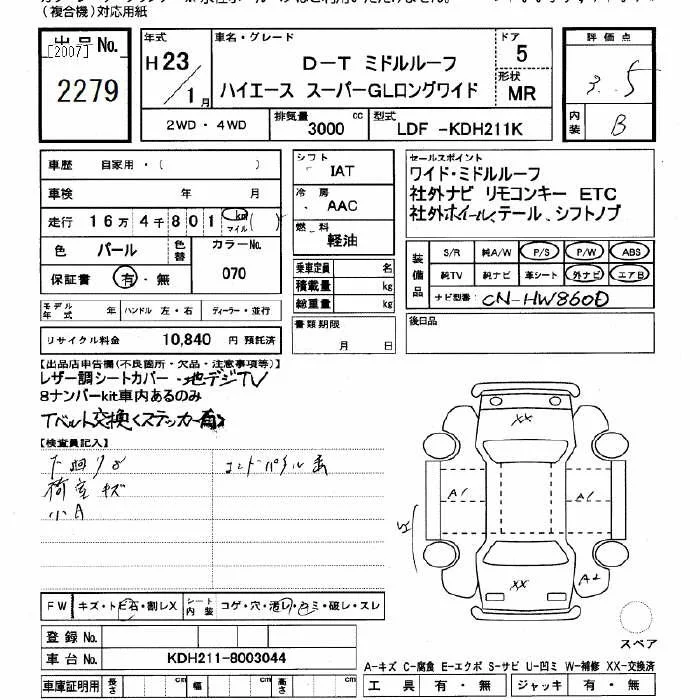 (複合機)対応用紙
出品No.
[2007]
2279
年式
H23/1月
車名・グレード
D-T ミドルルーフ
ハイエース スーパーGLロングワイド
ドア
5
形状
MR
評価点
3.5
内装
B
2WD・4WD
排気量
3000 cc
型式
LDF -KDH211K
車歴 自家用・( )
車検 年 月
走行 16万4千801 km マイル ( )
色 パール 色替 カラーNo.
070
保証書 有・無
シフト
IAT
冷房
AAC
燃料
軽油
乗車定員 名
積載量 kg
総重量 kg
セールスポイント
ワイド・ミドルルーフ
社外ナビ リモコンキー ETC
社外ホイール、テール、シフトノブ
装備品
S/R 純A/W P/S P/W ABS
純TV 純ナビ 革シート 外ナビ エアB
ナビ型番 CN-HW860D
モデル年式 年 ハンドル 左・右 ディーラー・並行
リサイクル料金 10,840 円 預託済
書類期限
月 日
後日品
【出品店申告欄(不良箇所・欠品・注意事項等)】
レザー調シートカバー・地デジTV
8ナンバーkit車内あるのみ
Tベルト交換<ステッカー有>
【検査員記入】
下廻りS
荷室キズ
小A
XX
A1
A1
XX
A2
FW キズ・トビ石・割レX シート内装 コゲ・穴・汚レ・シミ・破レ・スレ
登録No.
車台No. KDH211-8003044
車庫証明用 長さ cm 幅 cm 高さ cm
スペア
A-キズ C-腐食 E-エクボ S-サビ U-凹ミ W-補修 XX-交換済
工具 有・無 ジャッキ 有・無